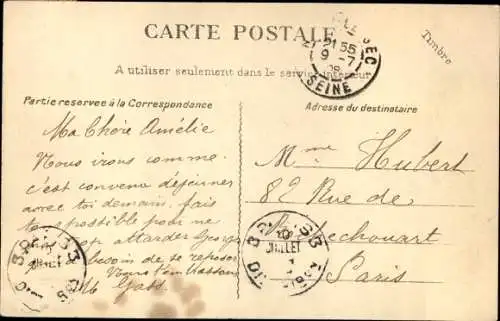 CARTE POSTALE
Timbre
21 55
9-7
SEINE
A utiliser seulement dans le service intérieur
Partie reservée à la Correspondance
Adresse du destinataire
Ma Chère Amélie
Nous irons comme
c'est convenu déjeuner
avec toi demain, fais
ton possible pour ne
attarder Georges
a besoin de se reposer
Nous t'embrassons
Mme Hubert
82 Rue de
Rochechouart
Paris
JUILLET